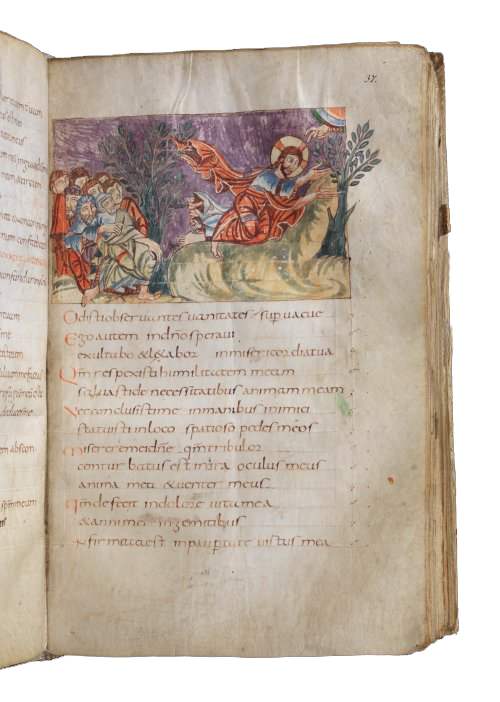 37.
Odisti obseruantes uanitates supuacue
Ego autem in dño speraui
exultabo & lętabor in misericordia tua
Qm̄ respexisti humilitatem meam
saluasti de necessitatibus animam meam
Nec conclusisti me in manibus inimici
statuisti in loco spatioso pedes meos
Miserere mei dñe qm̄ tribulor
conturbatus est in ira oculus meus
anima mea & uenter meus
Qm̄ defecit in dolore uita mea
& anni mei in gemitibus
Infirmata est in paupertate uirtus mea